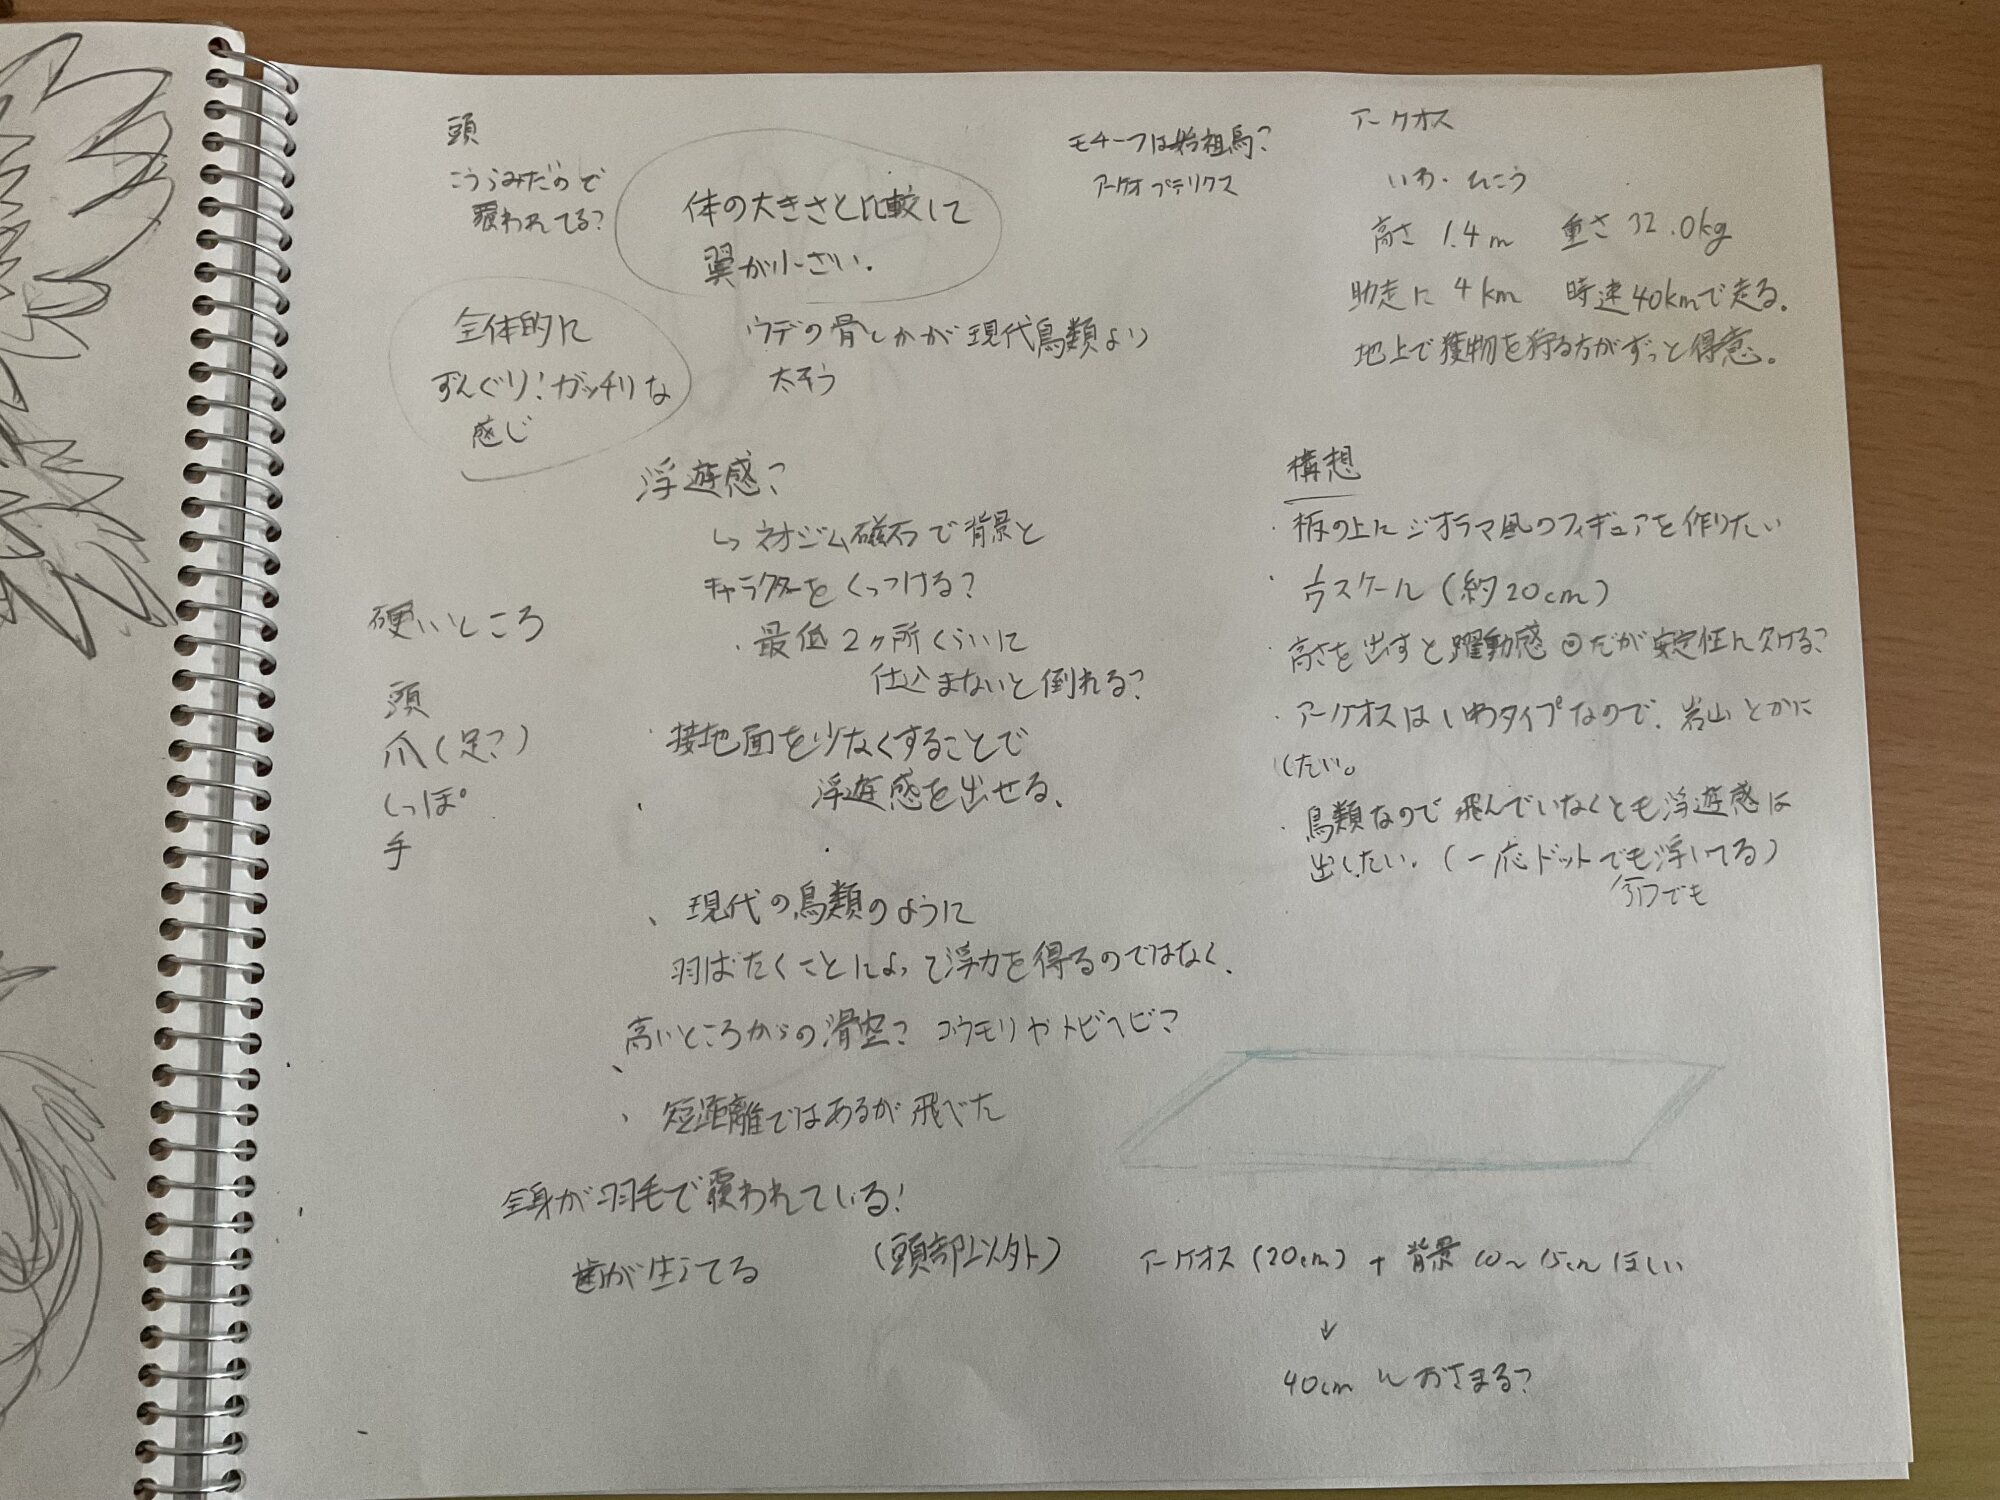 頭
こうらみだので
覆われてる?
体の大きさと比較して
翼が小さい.
全体的に
ずんぐり!ガッチリな
感じ
ウデの骨とかが現代鳥類より
太そう
モチーフは始祖鳥?
アーケオプテリクス
アーケオス
いわ・ひこう
高さ 1.4m 重さ 32.0kg
助走に 4km 時速40kmで走る.
地上で獲物を狩る方がずっと得意。
浮遊感?
↳ ネオジム磁石で背景と
キャラクターをくっつける?
・最低2ヶ所くらいに
仕込まないと倒れる?
・接地面を少なくすることで
浮遊感を出せる、
硬いところ
頭
爪(足?)
しっぽ
手
、現代の鳥類のように
羽ばたくことによって浮力を得るのではなく、
高いところからの滑空? コウモリやトビヘビ?
、短距離ではあるが飛べた
全身が羽毛で覆われている!
(頭部以外)
歯が生えてる
構想
・板の上にジオラマ風のフィギュアを作りたい
・スケール(約20cm)
・高さを出すと躍動感◎だが安定性に欠ける?
・アーケオスはいわタイプなので、岩山とかに
したい。
・鳥類なので飛んでいなくとも浮遊感は
出したい.(一応ドットでも浮いてる)
剣でも
アーケオス(20cm)+ 背景 10〜15cmほしい
↓
40cmにおさまる?